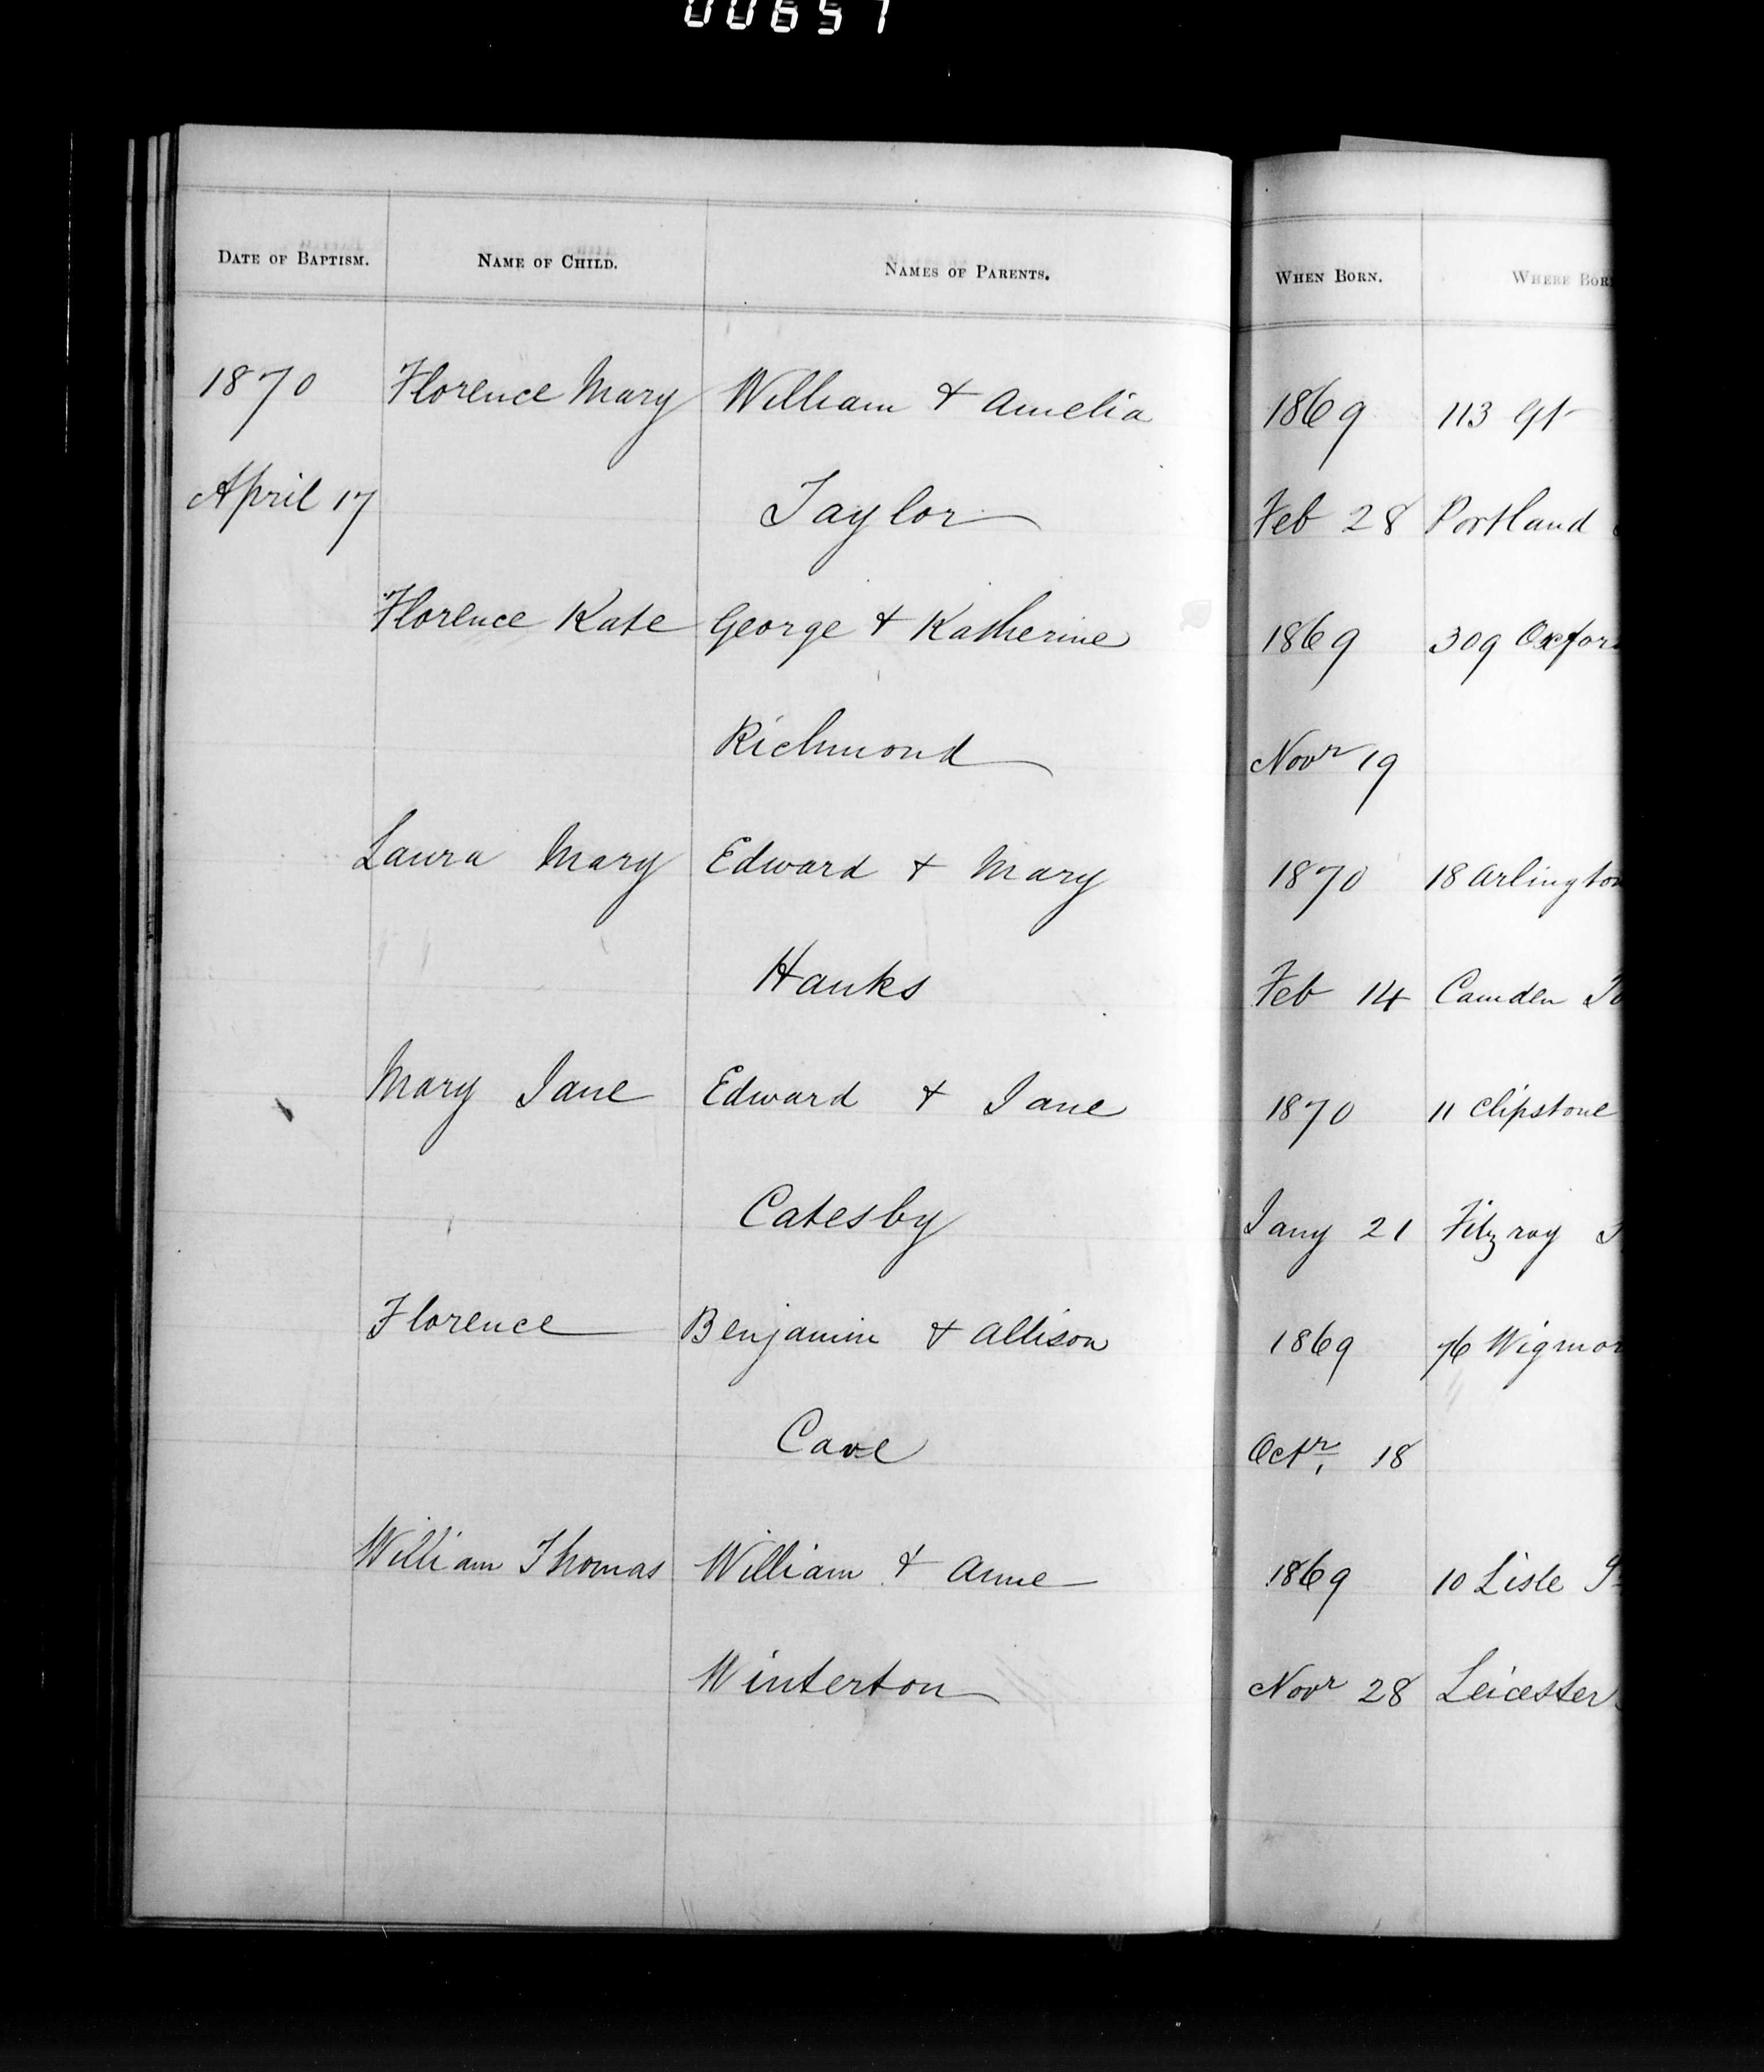 00657
DATE OF BAPTISM. NAME OF CHILD. NAMES OF PARENTS. WHEN BORN. WHERE BOR
1870 Florence Mary William & Amelia 1869 113 Gt
April 17 Taylor Feb 28 Portland
Florence Kate George & Katherine 1869 309 Oxfor
Richmond Novr 19
Laura Mary Edward & Mary 1870 18 Arlington
Hanks Feb 14 Camden To
Mary Jane Edward & Jane 1870 11 Clipstone
Catesby Jany 21 Fitzroy
Florence Benjamin & Allison 1869 76 Wigmor
Cave Octr. 18
William Thomas William & Anne 1869 10 Lisle
Winterton Novr 28 Leicester